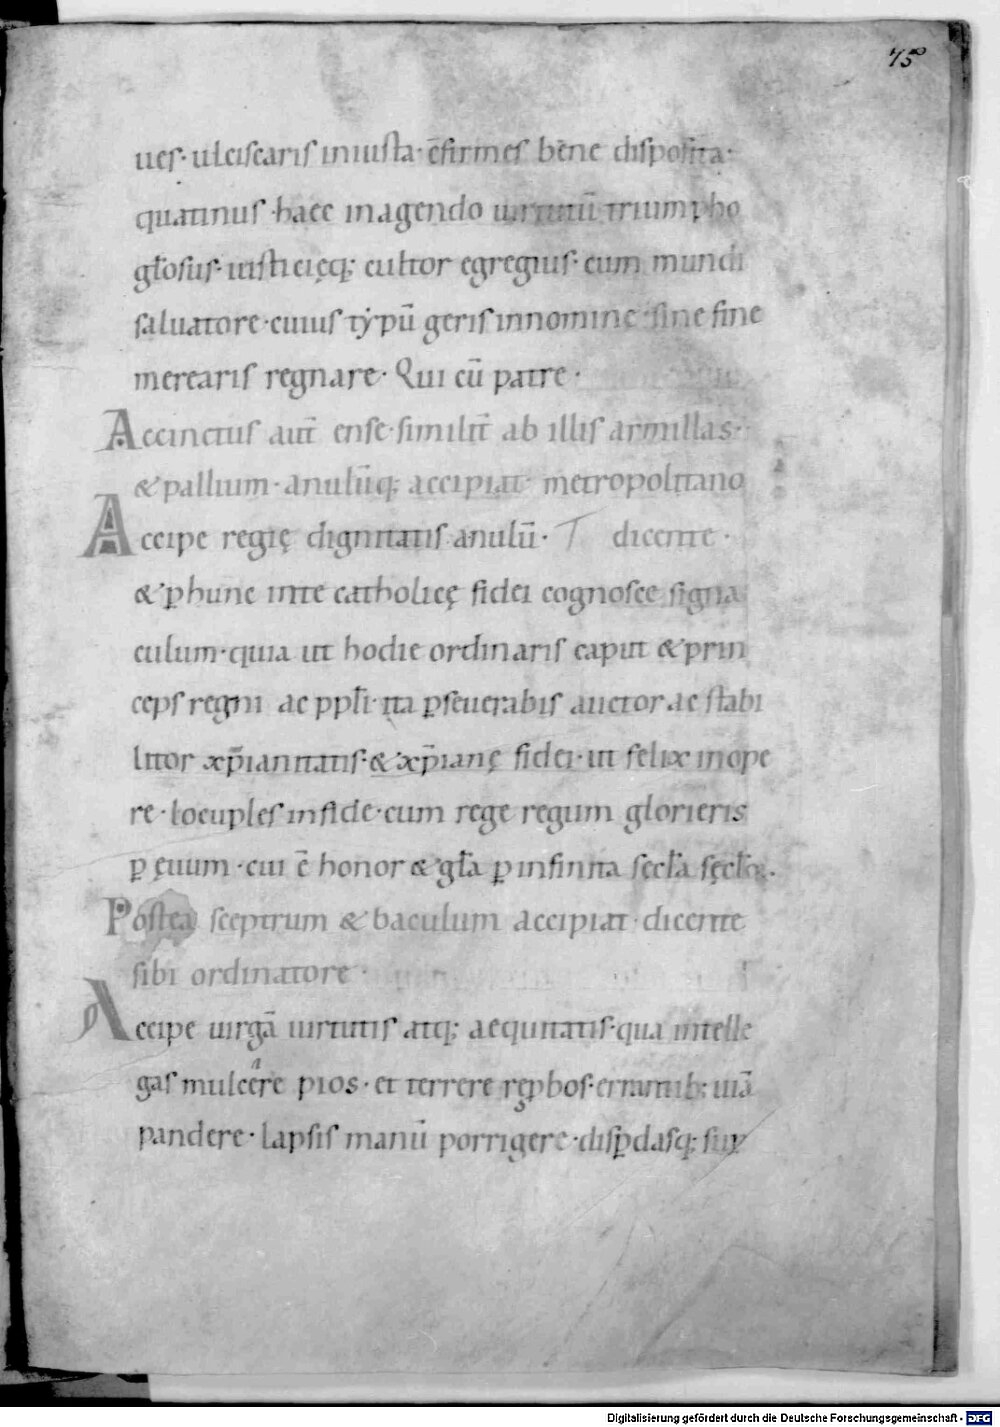 75
ues· ulciscaris iniusta· c̄firmes bene disposita·
quatinus· haec inagendo uirtutū triumpho
gl̄osus· iusticięq; cultor egregius· cum mundi
saluatore· cuius typū geris innomine· sine fine
merearis regnare· Qui cū patre·
Accinctus aut̄ ense· similit̄ ab illis armillas·
& pallium· anulūq; accipiat metropolitano
Accipe regię dignitatis anulū· T dicente·
& p̱ hunc inte catholicę fidei cognosce signa
culum· quia ut hodie ordinaris caput & prin
ceps regni ac pp̄li· ita p̱seuerabis auctor ac stabi
litor xp̄ianitatis· & xp̄ianę fidei· ut felix inope
re· locuples infide· cum rege regum glorieris
p̱ ęuum· cui ē honor & gl̄a p̱ infinita secl̄a sęcl̄oꝝ.
Postea sceptrum & baculum accipiat· dicente
sibi ordinatore·
Accipe uirgā uirtutis atq; aequitatis· qua intelle
gas mulcere pios· et terrere rep̱bos· errantib; uiā
pandere· lapsis manū porrigere· disp̱dasq; sup̱
Digitalisierung gefördert durch die Deutsche Forschungsgemeinschaft - DFG